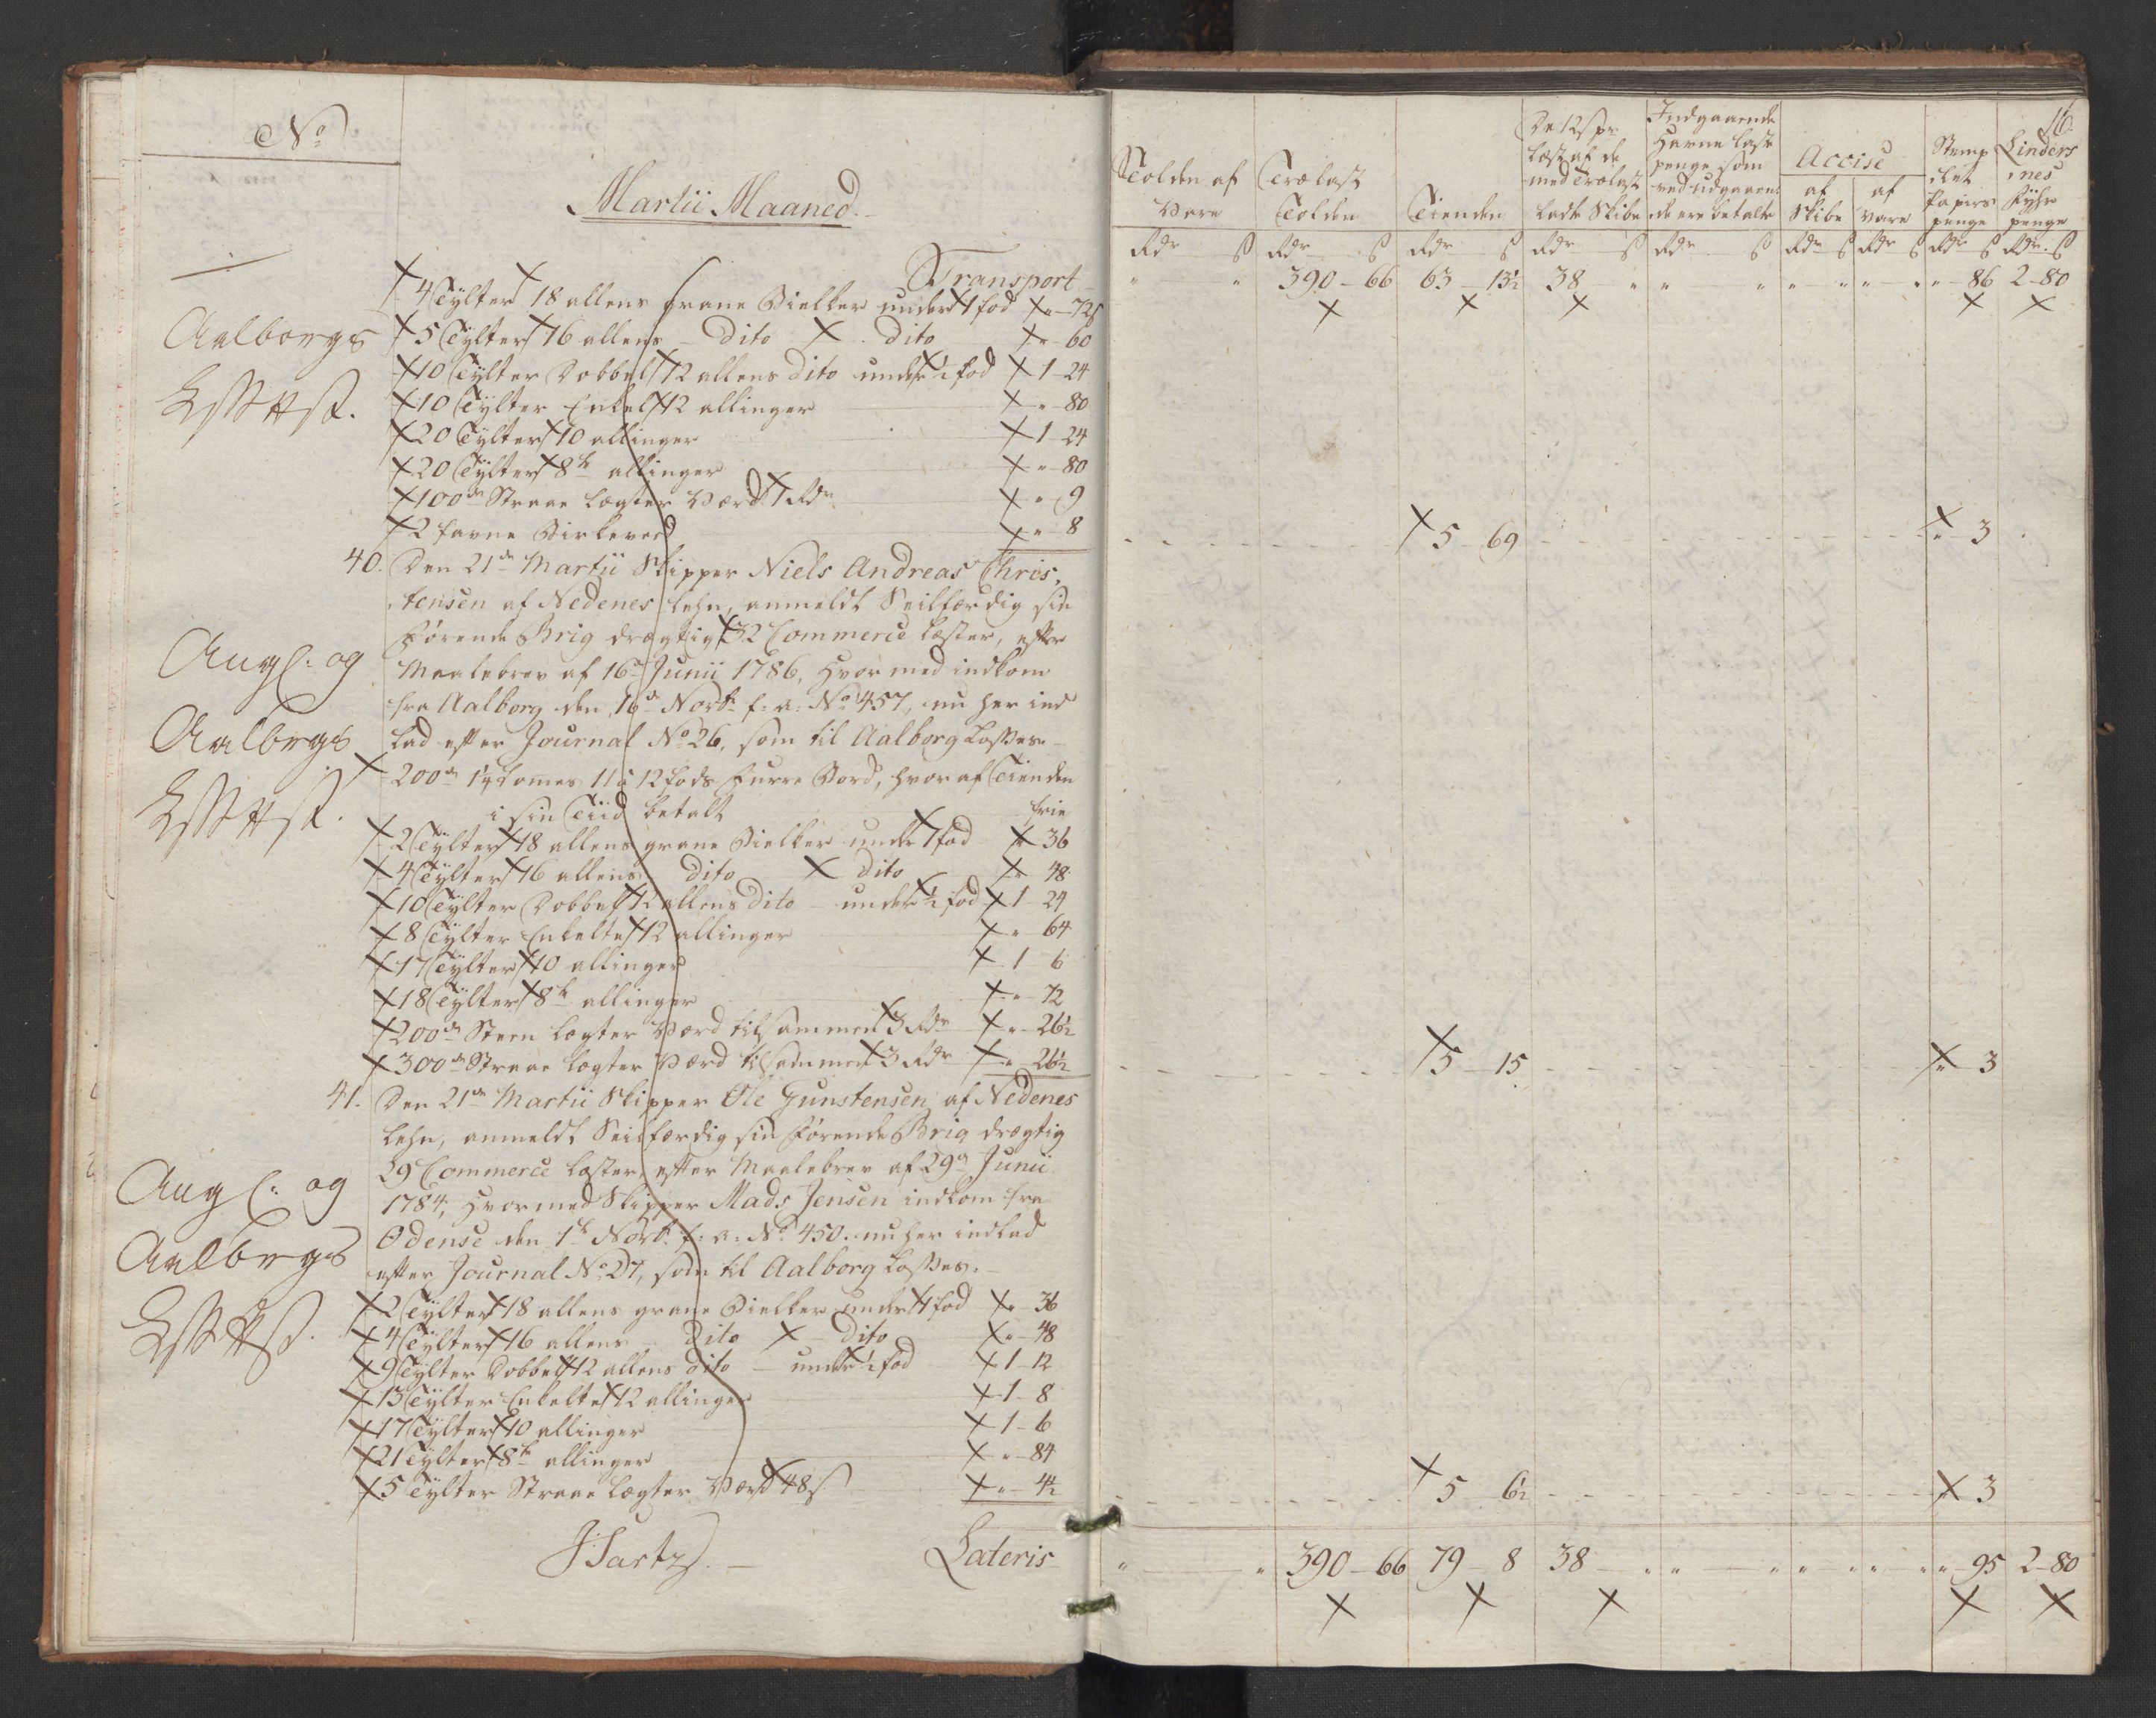 No
Martii Maaned.
Transport
4 Tylter 18 allens grane Bielker under 1 fod " 72ß
Aalborgs
5 Tylter 16 allens dito dito " 60
10 Tylter Dobbelt 12 allens dito under ½ fod 1 - 24
10 Tylter Enkelt 12 allinger " 80
20 Tylter 10 allinger 1 - 24
20 Tylter 8te allinger " 80
100de Straae Lægter Værd 1 Rdr " 9
2 favne Birkeved " 8
40. Den 21de Martii Skipper Niels Andreas Chris,
tensen af Nedenes Lehn, anmeldt Seilfærdig sin
førende Brig drægtig 32 Commerce læster, efter
Angl: og
Maalebrev af 16de Junii 1786, Hvormed indkom
fra Aalborg den 16de Novbr f: a: No 457, nu her ind
Aalborgs
lad efter Journal No 26, som til Aalborg Losses.
200de 1¼ tomes 11 à 12 fods Furre Bord, hvoraf Tienden
i sin Tiid betalt frie
2 Tylter 18 allens grane Bielker under 1 fod " 36
4 Tylter 16 allens dito dito " 48
10 Tylter Dobbelt 12 allens dito under ½ fod 1 - 24
8 Tylter Enkelte 12 allinger " 64
17 Tylter 10 allinger 1 - 6
18 Tylter 8te allinger " 72
200de Steen Lægter Værd tilsammen 3 Rdr " 26½
300de Straae Lægter Værd tilsammen 3 Rdr " 26½
41. Den 21de Martii Skipper Ole Gunstensen af Nedenes
Lehn, anmeldt Seilfærdig sin førende Brig drægtig
29 Commerce læster, efter Maalebrev af 29de Junii
Angl: og
1784, Hvormed Skipper Mads Jensen indkom fra
Odense den 1te Novbr f: a: No 450. nu her indlad
Aalborgs
efter Journal No 27, som til Aalborg Losses.
2 Tylter 18 allens grane Bielker under 1 fod " 36
4 Tylter 16 allens dito dito " 48
9 Tylter Dobbelt 12 allens dito under ½ fod 1 - 12
13 Tylter Enkelte 12 allinger 1 - 8
17 Tylter 10 allinger 1 - 6
21 Tylter 8te allinger " 84
5 Tylter Straae Lægter Værd 48ß " 4½
Lateris
16.
Tolden af Vare
Trælast Tolden
Tienden
De 12ß pr læst af de med Trælast ladte Skibe
Indgaaende Havne Laste penge som ved udgaaende ere betalte
Accise
af Skibe
af Vare
Stemplet Papiirs penge
Lindersnes Fyhr penge
Rdr ß Rdr ß Rdr ß Rdr ß Rdr ß Rdr ß Rdr ß Rdr ß Rdr ß
" " 390 - 66 63 - 13½ 38 " " " " " " " " - 86 2 - 80
5 69 " 3
5 - 15 " 3
5 6½ " 3
" " 390 - 66 79 - 8 38 " " " " " " " " - 95 2 - 80